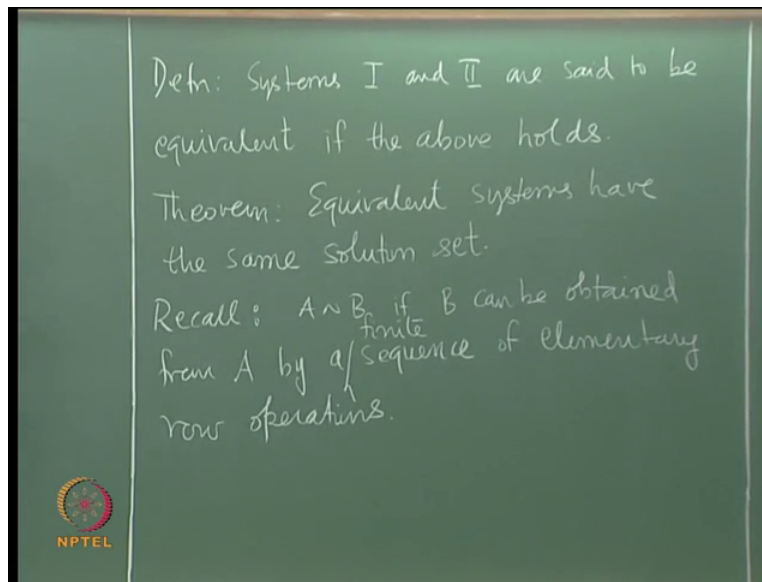 Defn: Systems I and II are said to be
equivalent if the above holds.
Theorem: Equivalent systems have
the same solution set.
Recall: A ~ B if B can be obtained
from A by a finite sequence of elementary
row operations.
NPTEL